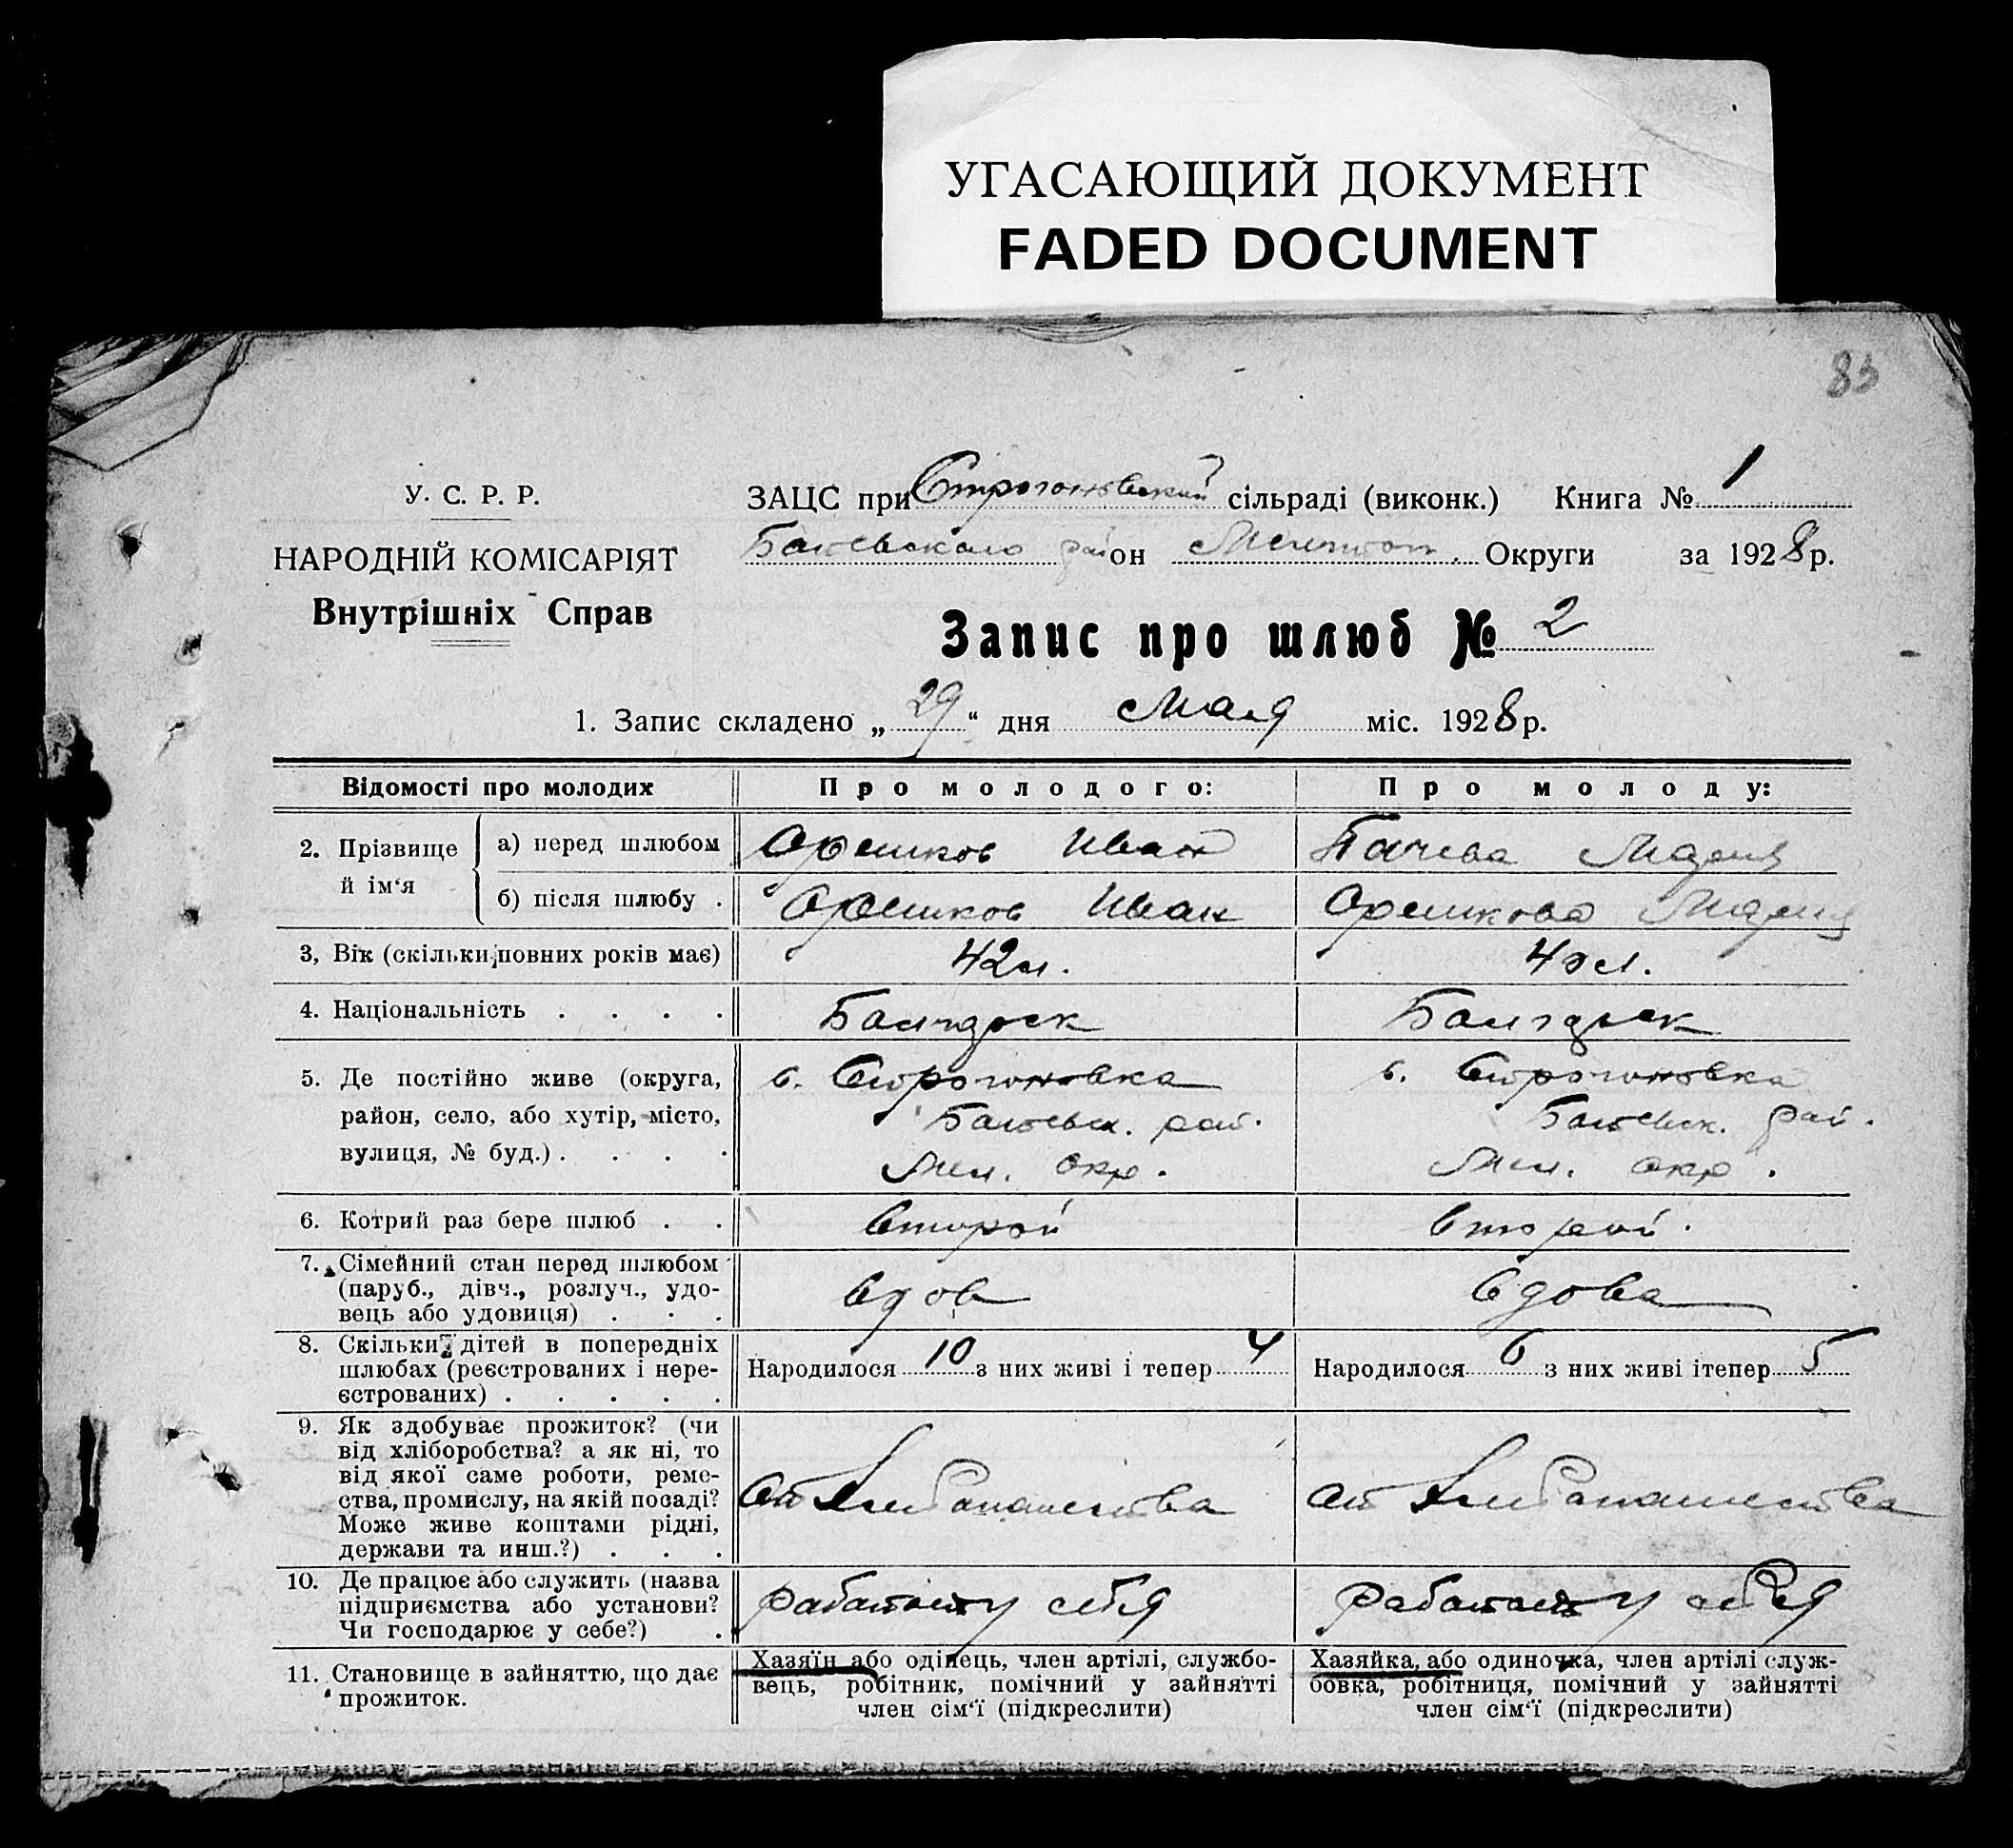 УГАСАЮЩИЙ ДОКУМЕНТ
FADED DOCUMENT
83
У. С. Р. Р.
НАРОДНІЙ КОМІСАРІЯТ
Внутрішніх Справ
ЗАЦС при Строгоновский сільраді (виконк.) Книга № 1
район Округи за 1928 р.
Запис про шлюб № 2
1. Запис складено „ 29 “ дня Мая міс. 1928 р.
Відомості про молодих Про молодого: Про молоду:
2. Прізвище й ім‘я
а) перед шлюбом Орешков Иван Пачева Мария
б) після шлюбу . Орешков Иван Орешкова Мария
3, Вік (скільки повних років має) 42 л. 40 л.
4. Національність . . . .
5. Де постійно живе (округа, с. Строгоновка с. Строгоновка
район, село, або хутір, місто, рай. рай.
вулиця, № буд.) . . . . Мел. окр. Мел. окр.
6. Котрий раз бере шлюб . . Второй Второй.
7. Сімейний стан перед шлюбом
(паруб., дівч., розлуч., удо- Вдов Вдова
вець або удовиця) . . .
8. Скільки дітей в попередніх
шлюбах (реєстрованих і нере- Народилося 10 з них живі і тепер 4 Народилося 6 з них живі ітепер 5
єстрованих) . . . . .
9. Як здобуває прожиток? (чи
від хліборобства? а як ні, то
від якої саме роботи, реме-
ства, промислу, на якій посаді? От От
Може живе коштами рідні,
держави та инш.?) . . .
10. Де працює або служить (назва
підприємства або установи? у себя у себя
Чи господарює у себе?) .
11. Становище в зайняттю, що дає
прожиток.
Хазяїн або одінець, член артілі, службо-
вець, робітник, помічний у зайнятті
член сім‘ї (підкреслити)
Хазяйка, або одиночка, член артілі служ-
бовка, робітниця, помічний у зайнятті
член сім‘ї (підкреслити)